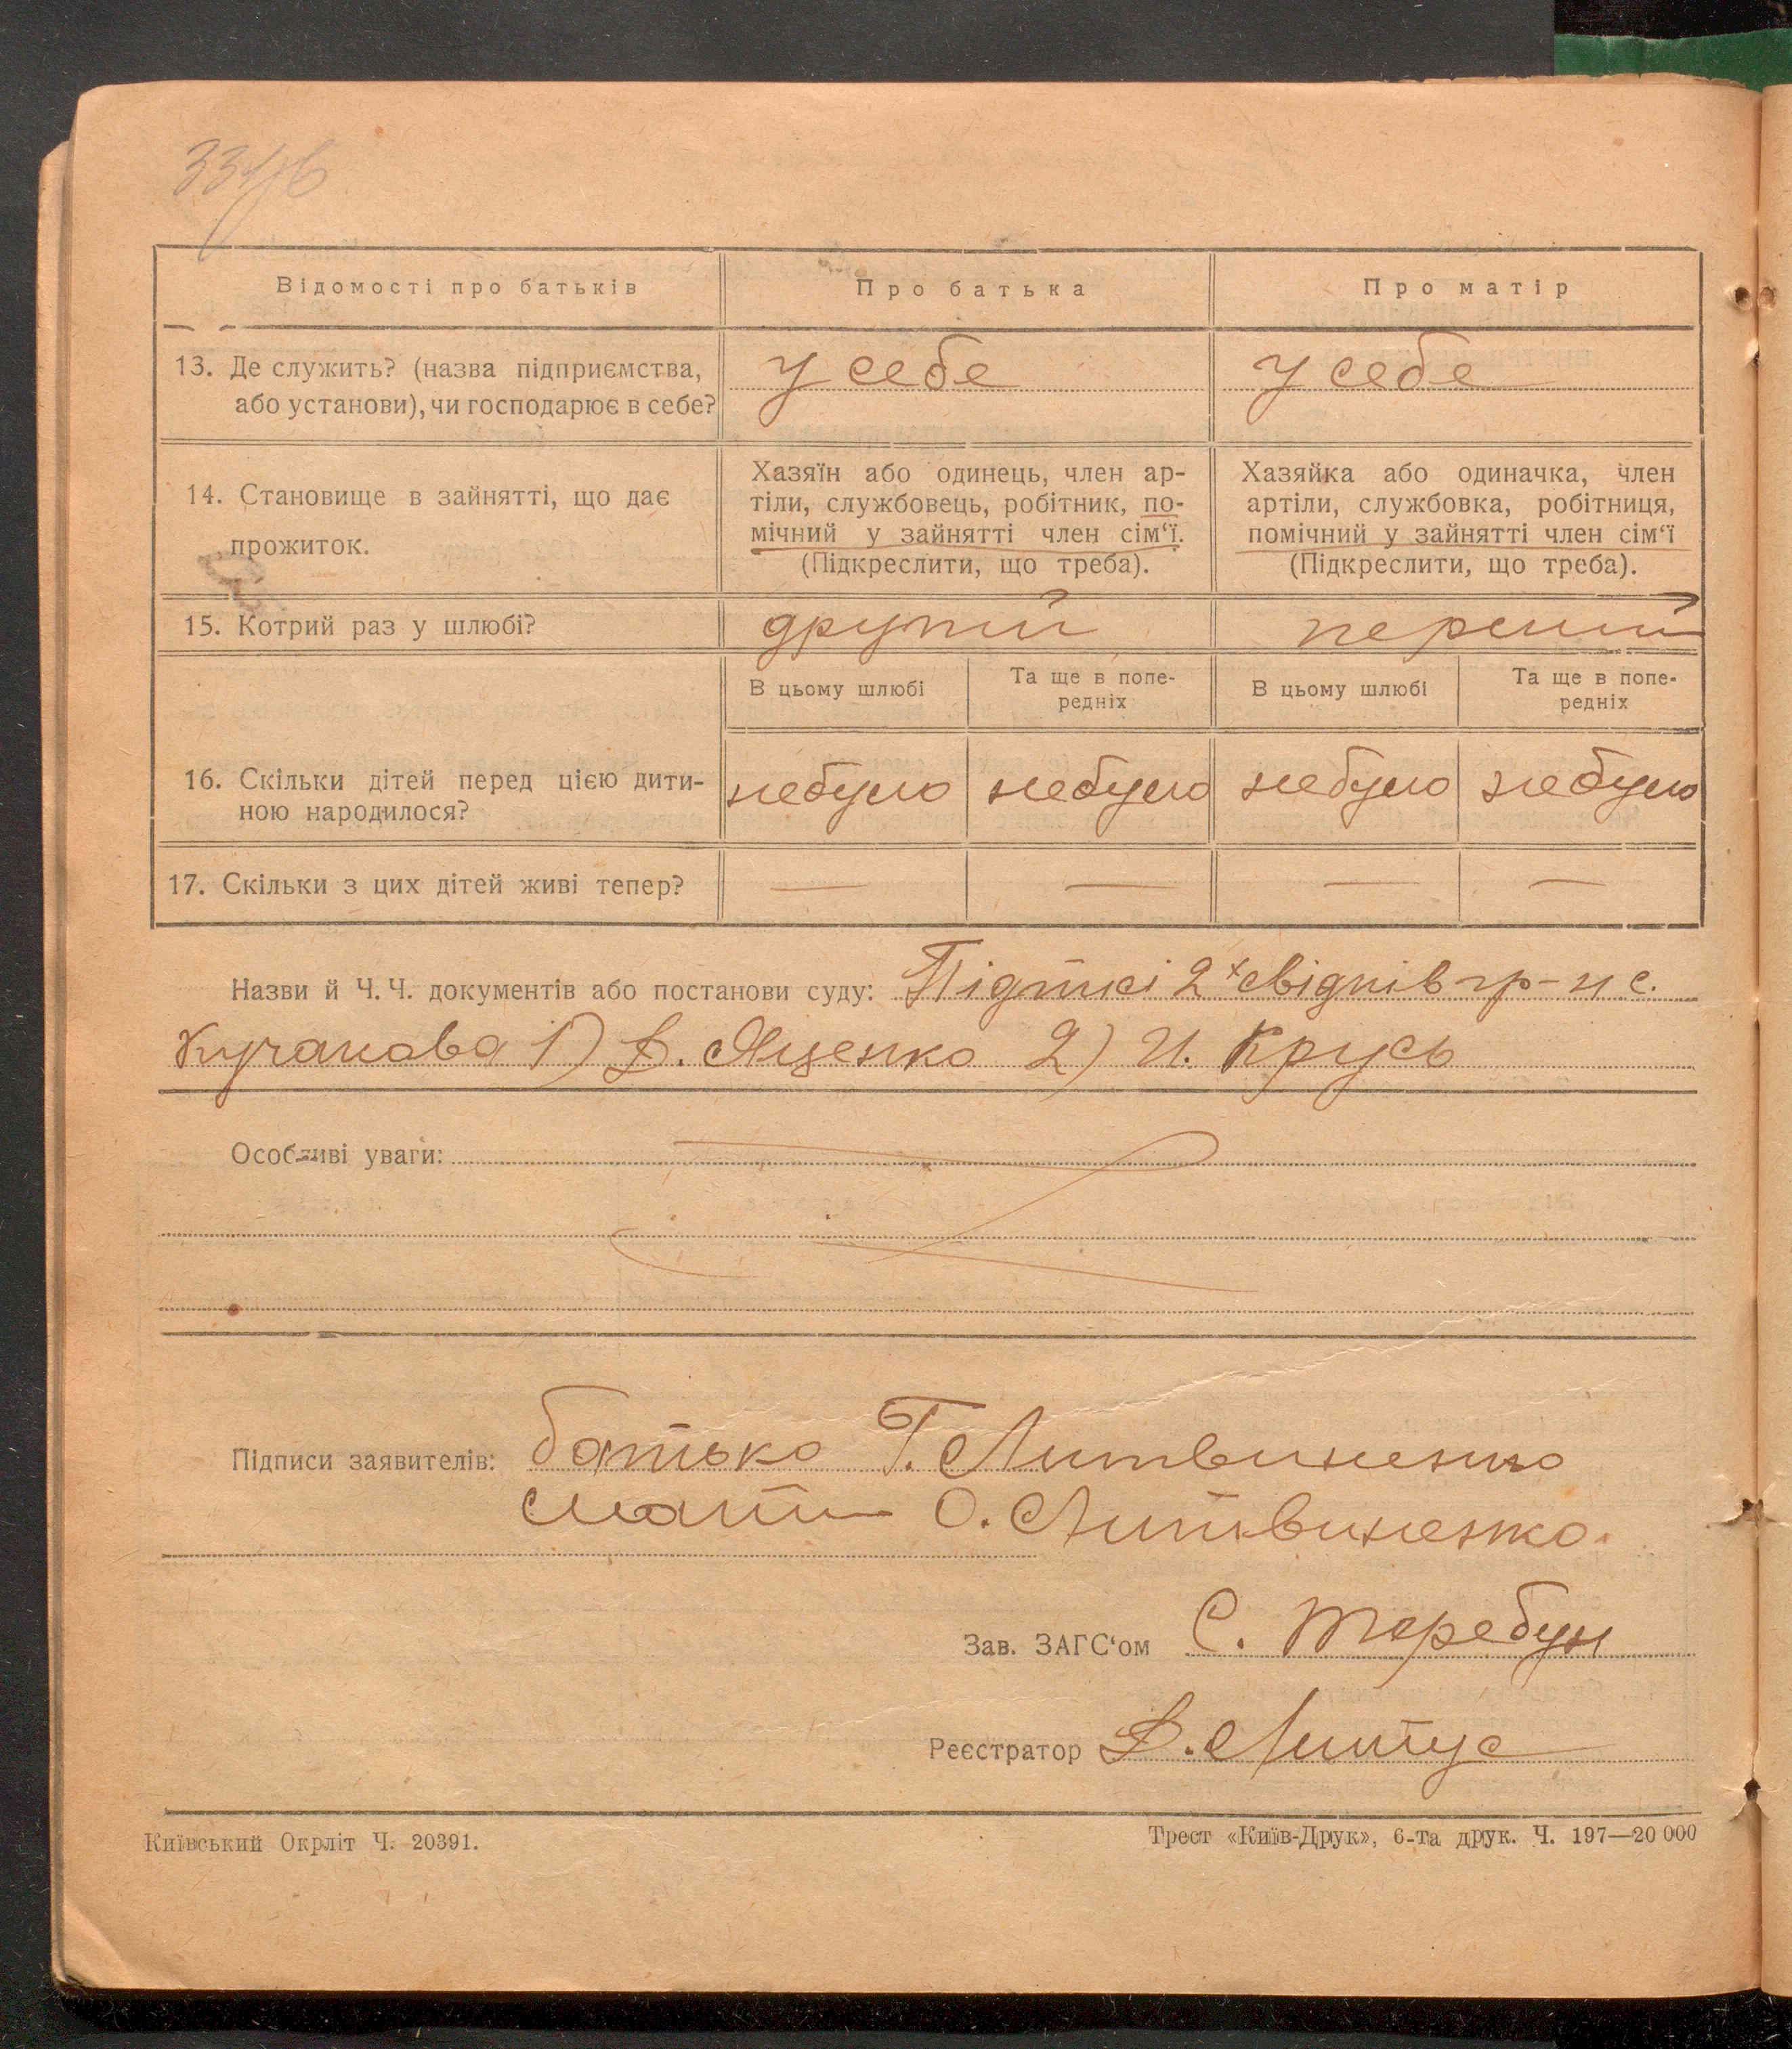 Відомості про батьків Про батька Про матір
13. Де служить? (назва підприємства, або установи), чи господарює в себе?
у себе у себе
14. Становище в зайнятті, що дає прожиток.
Хазяїн або одинець, член ар-
тіли, службовець, робітник, по-
мічний у зайнятті член сім‘ї.
(Підкреслити, що треба).
Хазяйка або одиначка, член
артіли, службовка, робітниця,
помічний у зайнятті член сім‘ї
(Підкреслити, що треба).
15. Котрий раз у шлюбі? другий перший
В цьому шлюбі
Та ще в попе-
редніх
В цьому шлюбі
Та ще в попе-
редніх
16. Скільки дітей перед цією дити-
ною народилося?
небуло небуло небуло небуло
17. Скільки з цих дітей живі тепер? — — — —
Назви й Ч.Ч. документів або постанови суду: Підписі 2х свідків гр-н с.
Кучакова 1) Д. Яценко 2) И. Крусь
Особливі уваги:
Підписи заявителів: батько Г. Литвиненко
мати О. Литвиненко.
Зав. ЗАГС‘ом С.
Реєстратор
Київський Окрліт Ч. 20391.
Трест «Київ-Друк», 6-та друк. Ч. 197—20 000